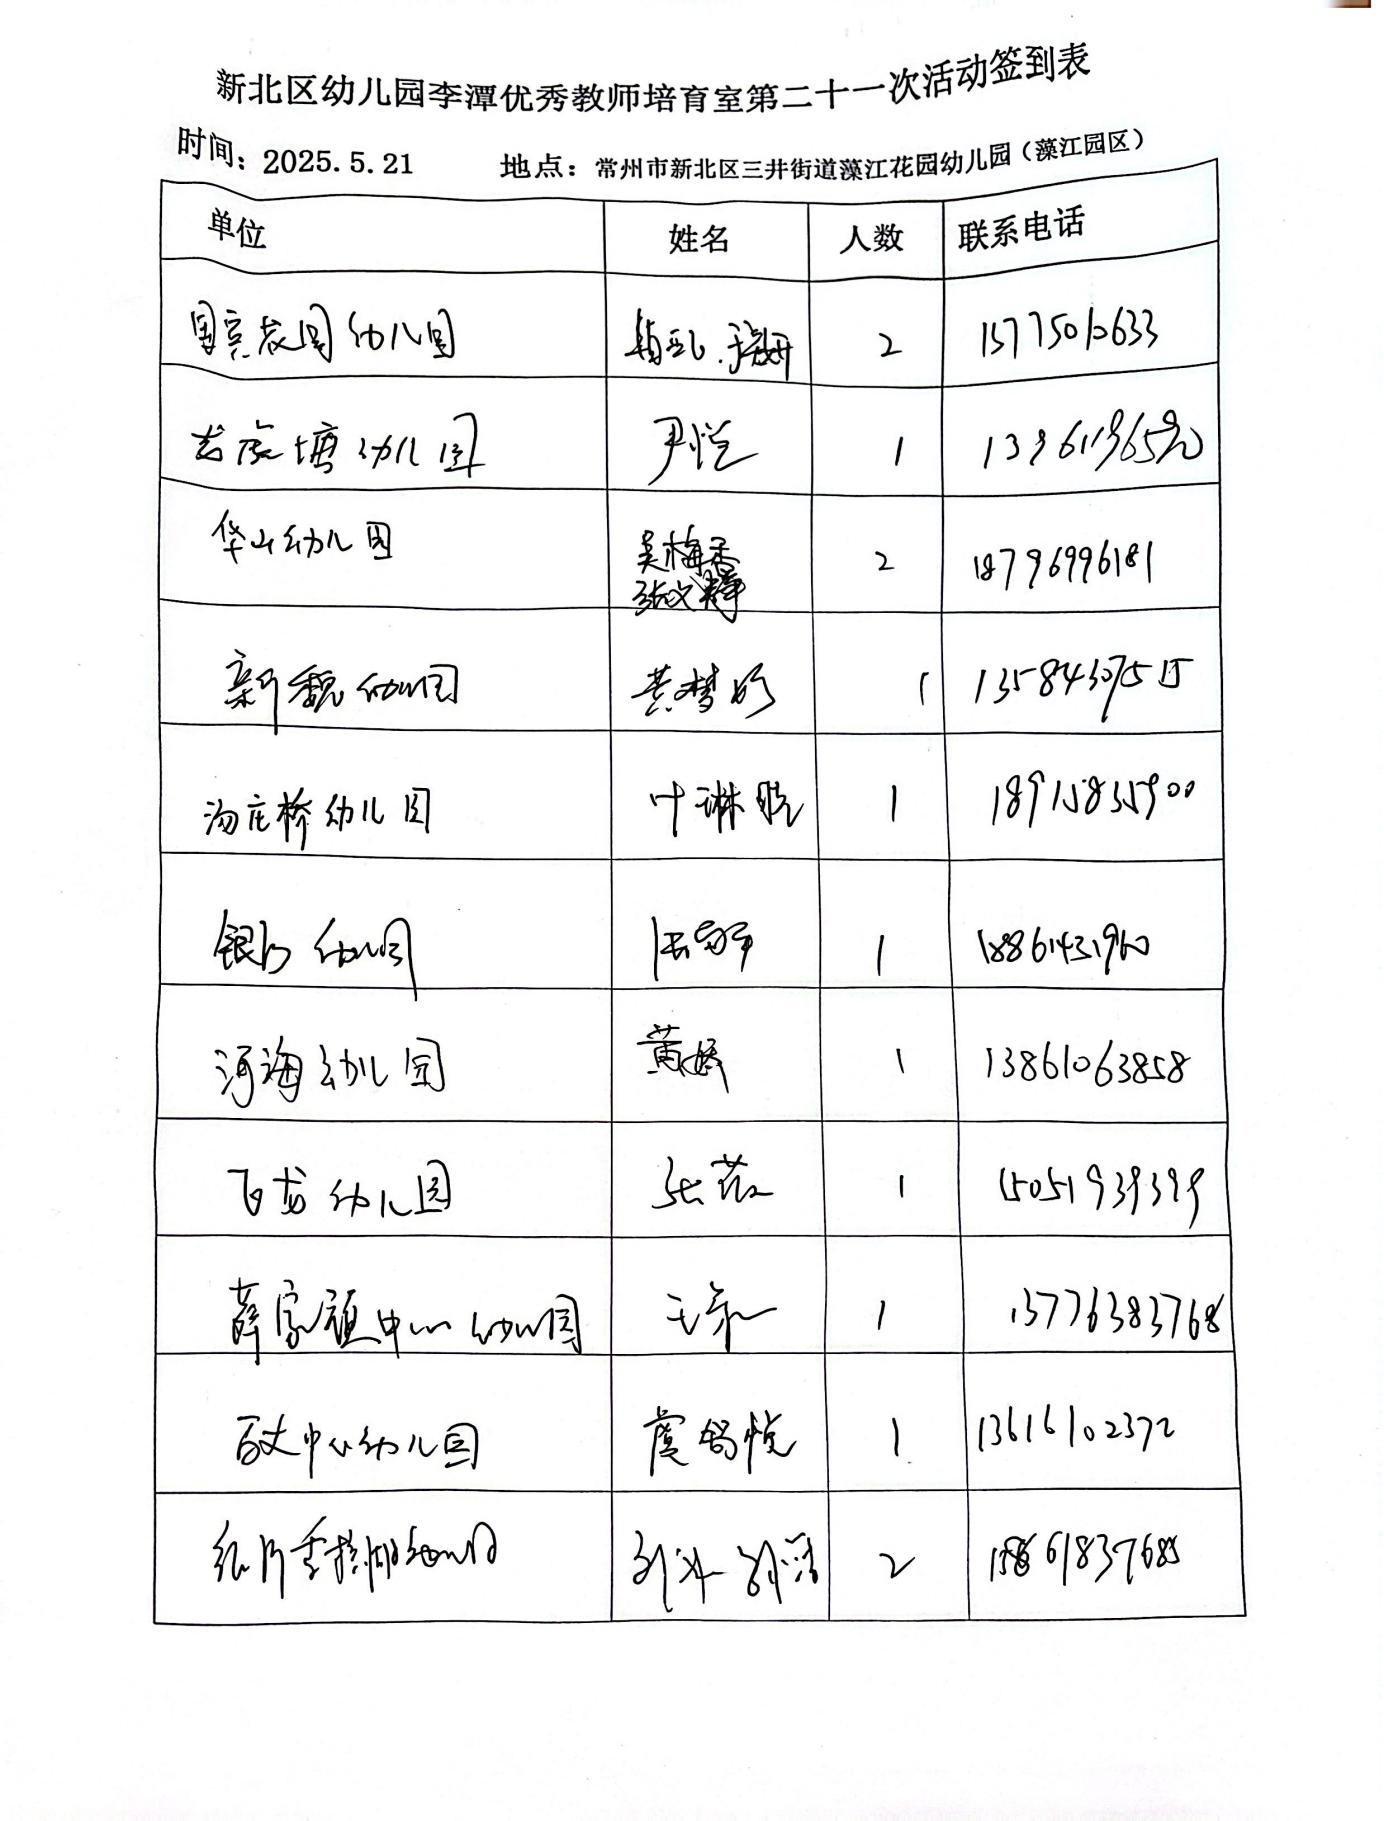 新北区幼儿园李潭优秀教师培育室第二十一次活动签到表
时间：2025.5.21 地点：常州市新北区三井街道藻江花园幼儿园（藻江园区）
单位 姓名 人数 联系电话
国宾花园幼儿园 2 15775010633
幼儿园 尹悦 1
华山幼儿园 吴梅 张文 2 18796996181
新魏幼儿园 黄梦 1 13584307515
汤庄桥幼儿园 叶琳 1 18915835900
银河幼儿园 1 18861431960
河海幼儿园 黄娇 1 13861063858
飞龙幼儿园 张 1 15051939399
薛家镇中心幼儿园 王 1 13776383768
百丈中心幼儿园 虞 悦 1 13616102372
幼儿园 2